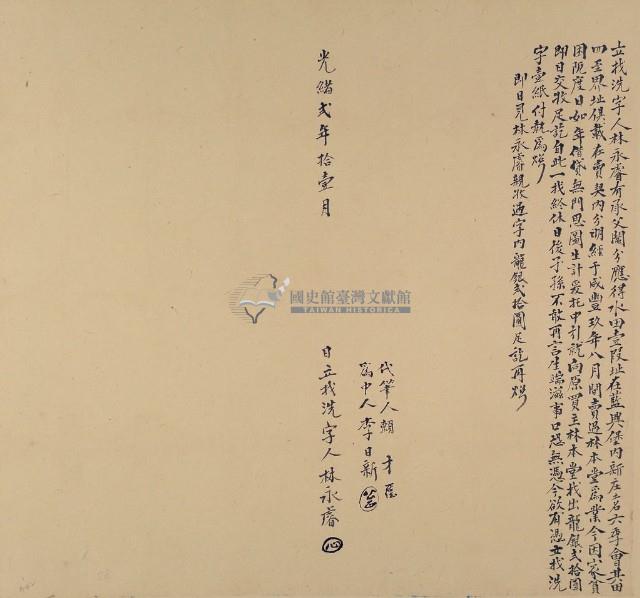 立找洗字人林永睿有承父鬮分應得水田壹段址在藍興堡內新庄土名六季會其田
四至界址俱載在賣契內分明經于咸豐玖年八月間賣過林本堂為業今因家貧
困阨度日如年借貸無門思圖生計爰托中引就向原買主林本堂找出龍銀貳拾圓
即日交收足訖自此一找終休日後子孫不敢再言生端滋事口恐無憑今欲有憑立找洗
字壹紙付執為炤
即日見林永睿親收過字內龍銀貳拾圓足訖再炤
代筆人賴 才
為中人李日新
光緒貳年拾壹月
日立找洗字人林永睿
國史館臺灣文獻館
TAIWAN HISTORICA